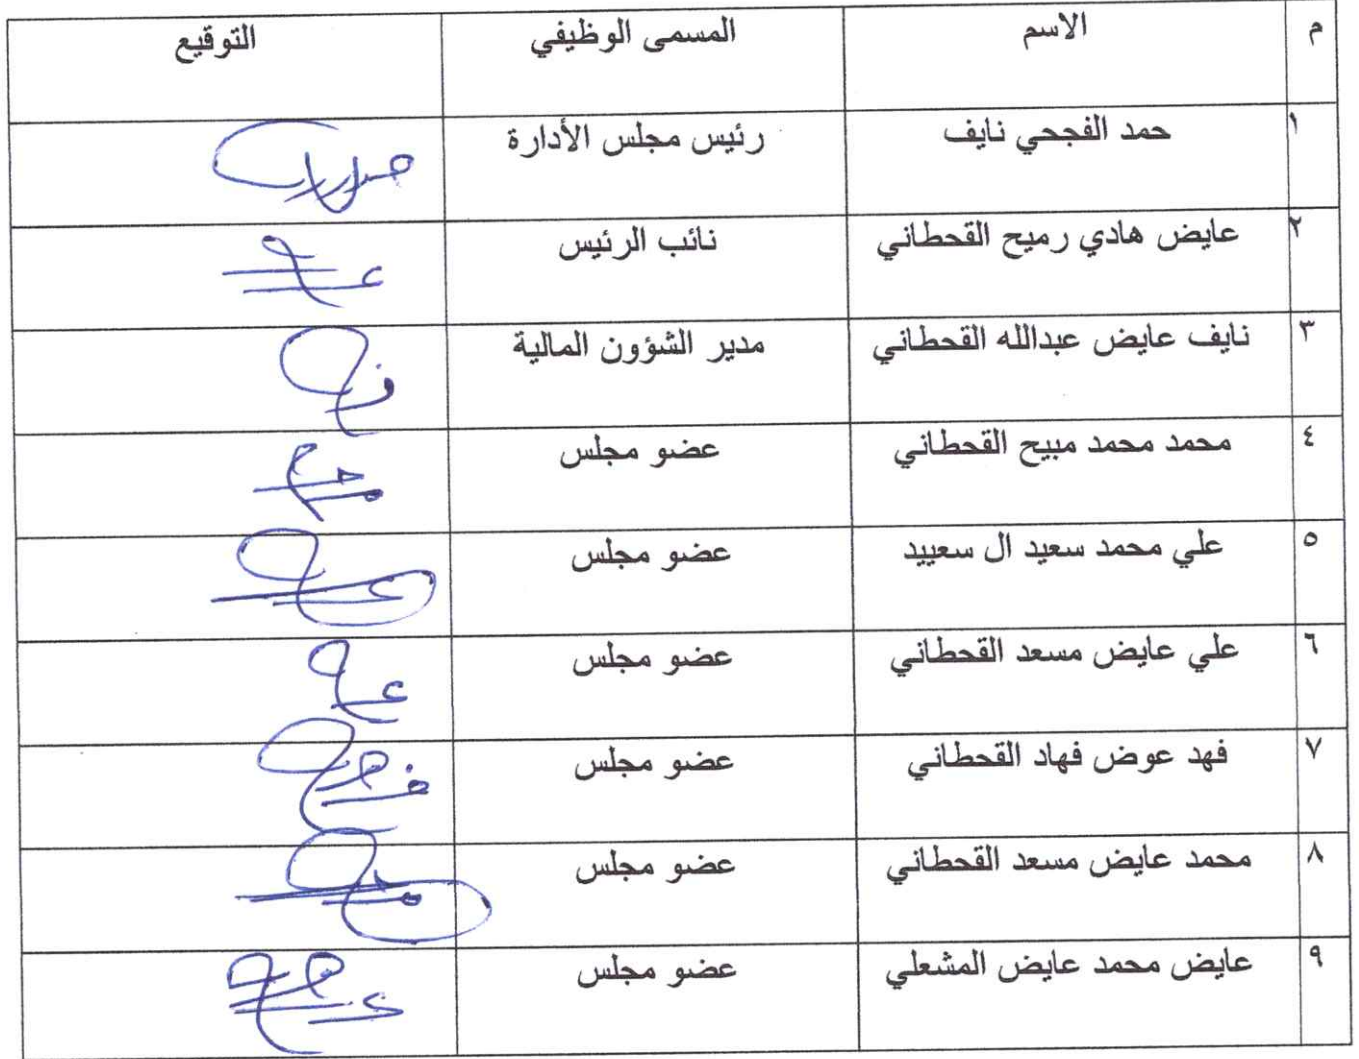 م الاسم المسمى الوظيفي التوقيع
١ حمد الفجحي نايف رئيس مجلس الأدارة
٢ عايض هادي رميح القحطاني نائب الرئيس
٣ نايف عايض عبدالله القحطاني مدير الشؤون المالية
٤ محمد محمد مبيح القحطاني عضو مجلس
٥ علي محمد سعيد ال سعييد عضو مجلس
٦ علي عايض مسعد القحطاني عضو مجلس
٧ فهد عوض فهاد القحطاني عضو مجلس
٨ محمد عايض مسعد القحطاني عضو مجلس
٩ عايض محمد عايض المشعلي عضو مجلس